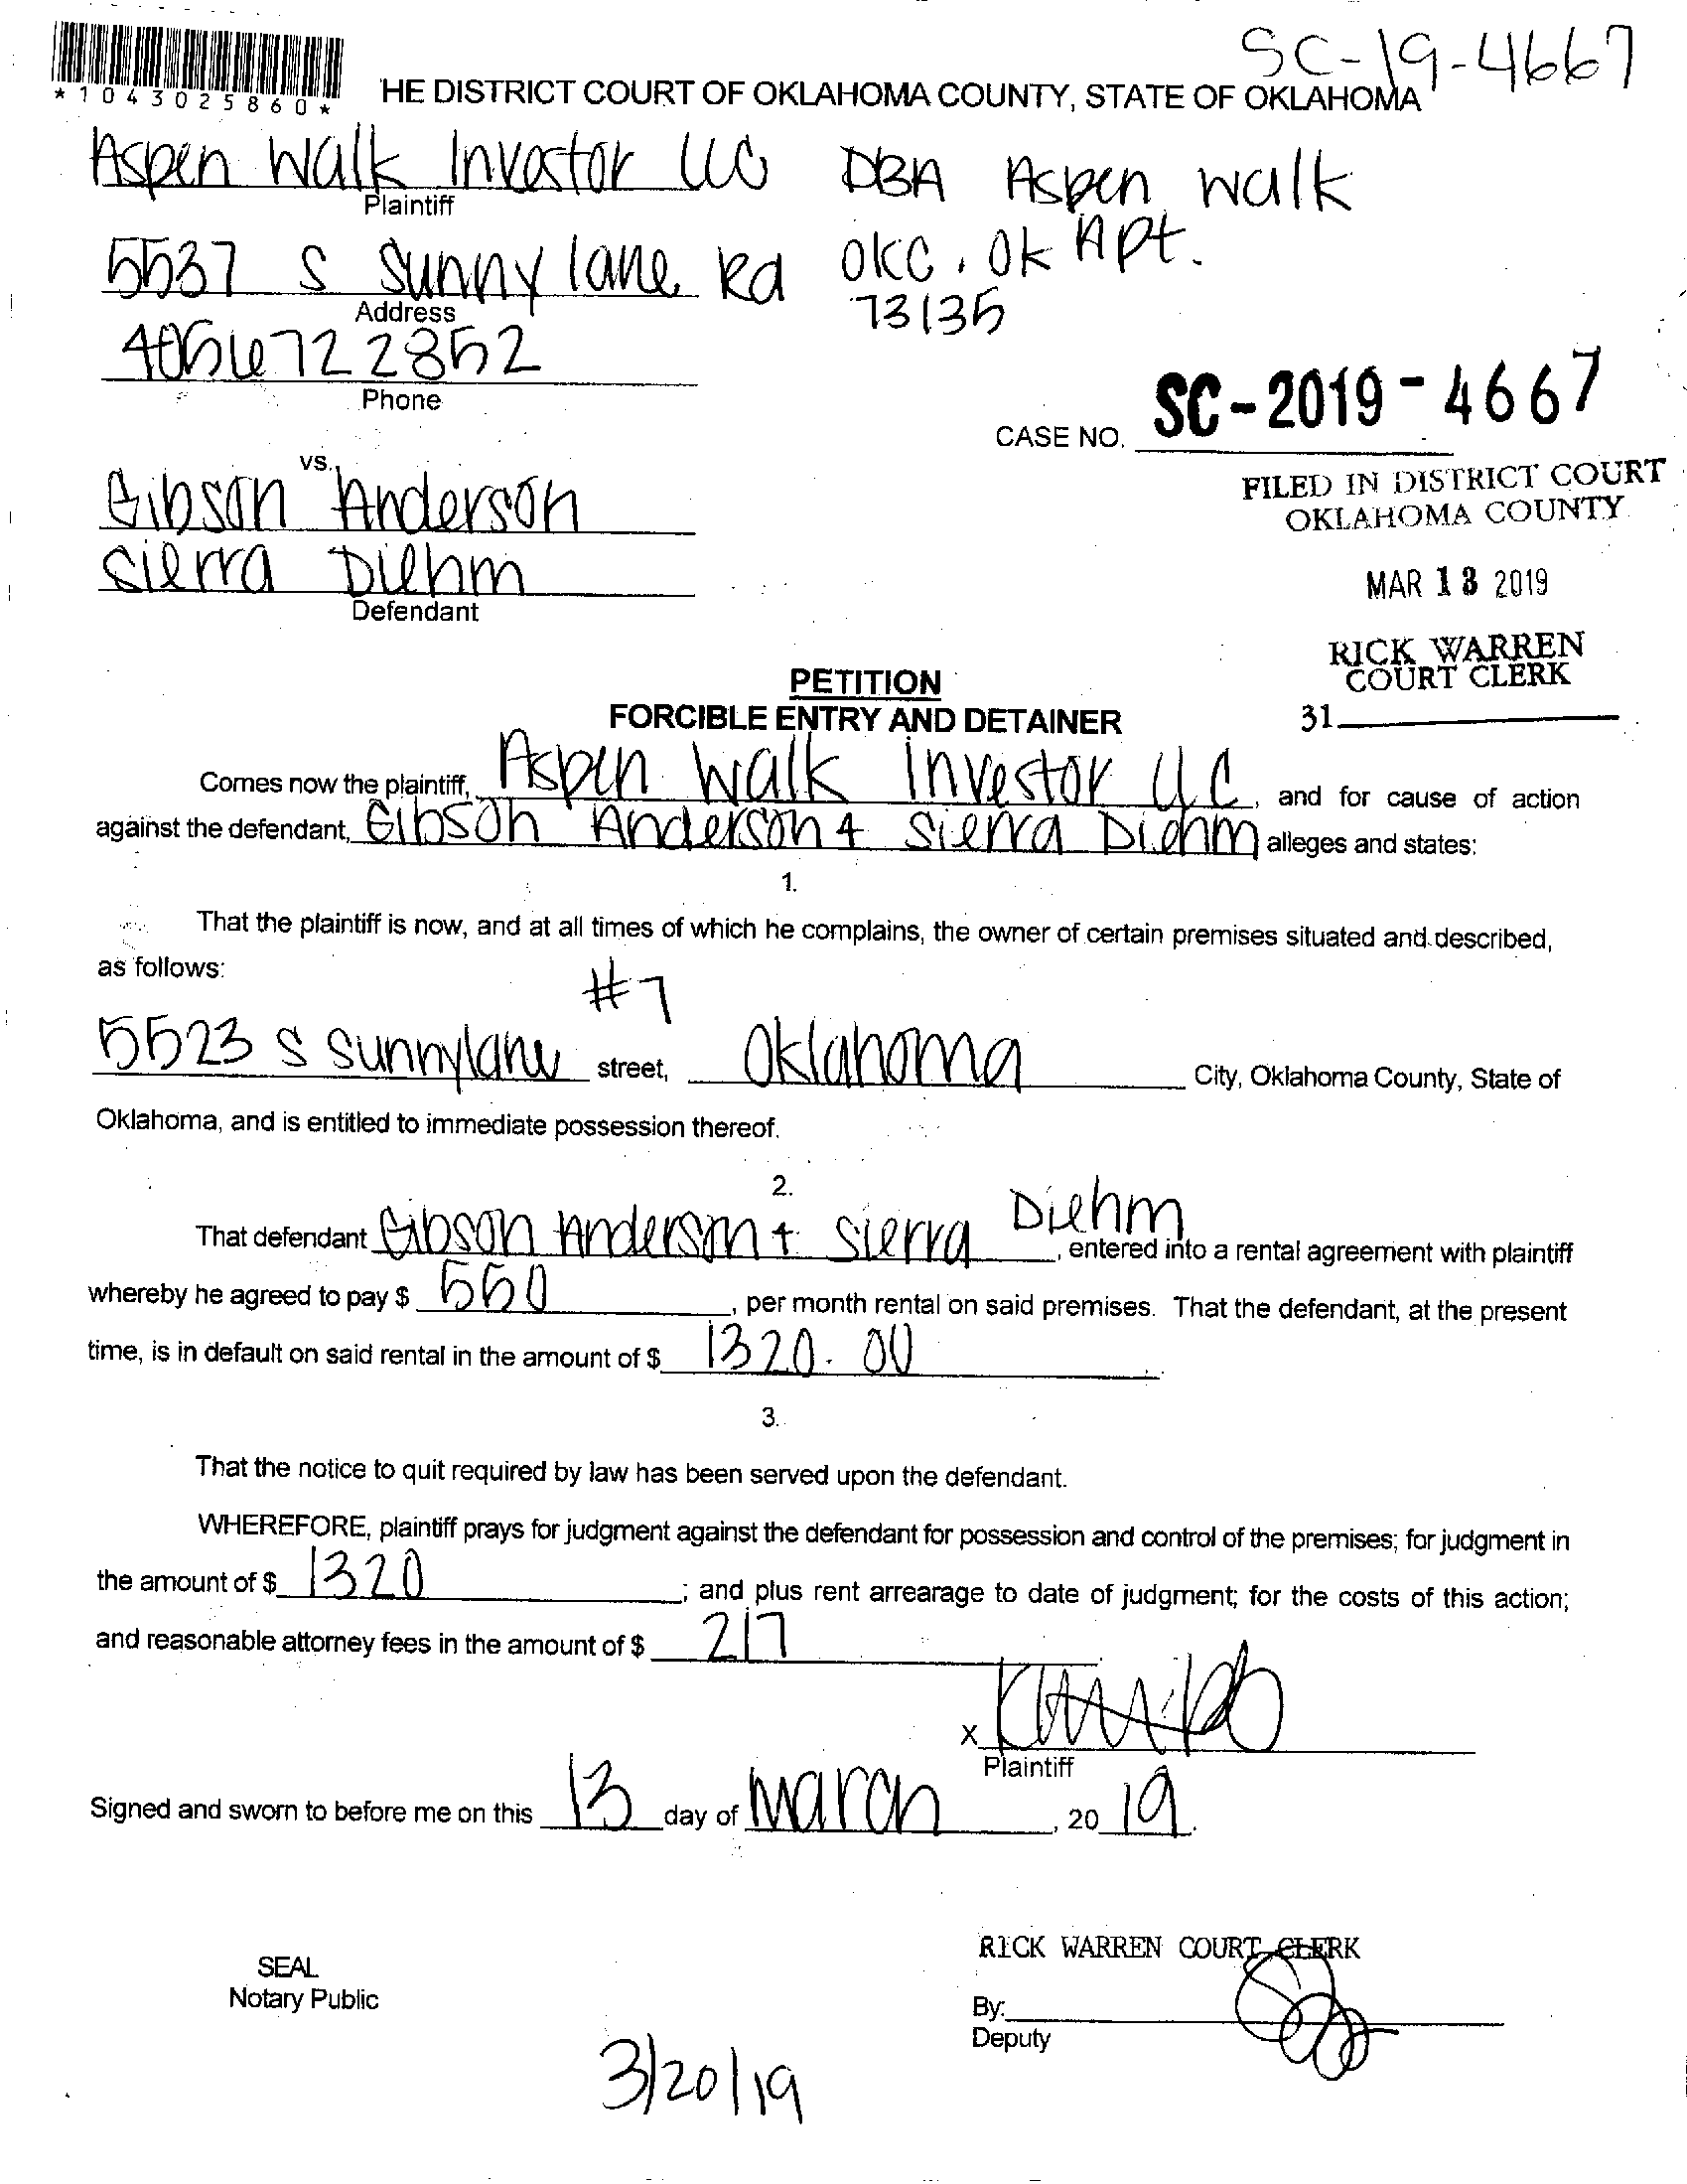 SC-19-4667
*1043025860*
HE DISTRICT COURT OF OKLAHOMA COUNTY, STATE OF OKLAHOMA
Aspen Walk Investor LLC DBA Aspen Walk
Plaintiff
5537 S Sunny lane Rd OKC, OK Apt.
Address
73135
4056722852
Phone
CASE NO. SC-2019-4667
vs.
Gibson Anderson
FILED IN DISTRICT COURT
OKLAHOMA COUNTY
Sierra Diehm
Defendant
MAR 13 2019
RICK WARREN
COURT CLERK
PETITION
FORCIBLE ENTRY AND DETAINER
31
Comes now the plaintiff, Aspen Walk Investor LLC, and for cause of action
against the defendant, Gibson Anderson + Sierra Diehm alleges and states:
1.
That the plaintiff is now, and at all times of which he complains, the owner of certain premises situated and described,
as follows:
#7
5523 S Sunnylane street, Oklahoma City, Oklahoma County, State of
Oklahoma, and is entitled to immediate possession thereof.
2.
That defendant Gibson Anderson + Sierra Diehm, entered into a rental agreement with plaintiff
whereby he agreed to pay $ 550, per month rental on said premises. That the defendant, at the present
time, is in default on said rental in the amount of $ 1320.00.
3.
That the notice to quit required by law has been served upon the defendant.
WHEREFORE, plaintiff prays for judgment against the defendant for possession and control of the premises; for judgment in
the amount of $ 1320; and plus rent arrearage to date of judgment; for the costs of this action;
and reasonable attorney fees in the amount of $ 217
X
Plaintiff
Signed and sworn to before me on this 13 day of March, 20 19.
RICK WARREN COURT CLERK
SEAL
Notary Public
By:
Deputy
3/20/19